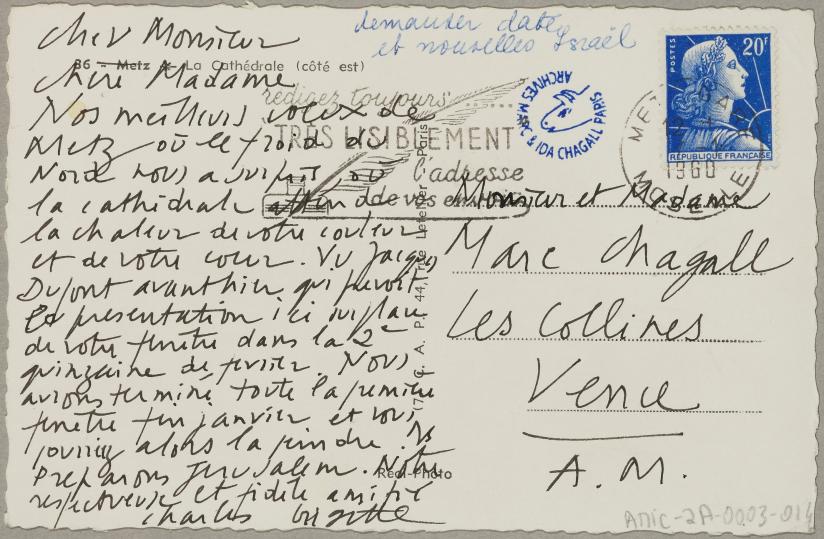 Cher Monsieur
86 - Metz - La Cathédrale (côté est)
Chère Madame
Nos meilleurs voeux de
Metz où le froid du
Nord nous a surpris, où
la cathédrale attend
la chaleur de votre couleur
et de votre coeur. Vu Jacques
Dupont avanthier qui prévoit
la présentation ici sur place
de votre fenêtre dans la 2e
quinzaine de février. Nous
avions terminé toute la première
fenêtre fin janvier et vous
pourriez alors la peindre. Ns
préparons Jerusalem. Notre
respectueuse et fidèle amitié
Charles Brigitte
demander date
et nouvelles Israël
rédigez toujours
TRÈS LISIBLEMENT
l'adresse
de vos
ARCHIVES MARC & IDA CHAGALL PARIS
POSTES
20F
RÉPUBLIQUE FRANÇAISE
METZ
1960
MOSELLE
44, rue Letellier - Paris
C. A. P.
Réal-Photo
Monsieur et Madame
Marc Chagall
Les Collines
Vence
A.M.